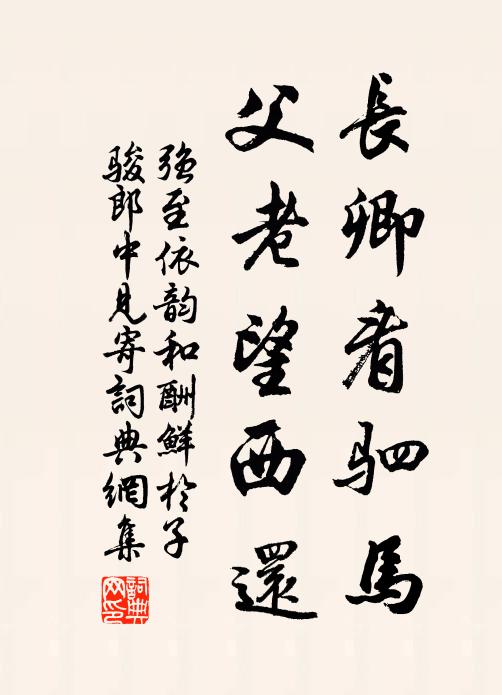 長卿看駟馬
父老望西還
強至依韵和酬鮮於子
駿郎中見寄詞典網集
詞典
網印